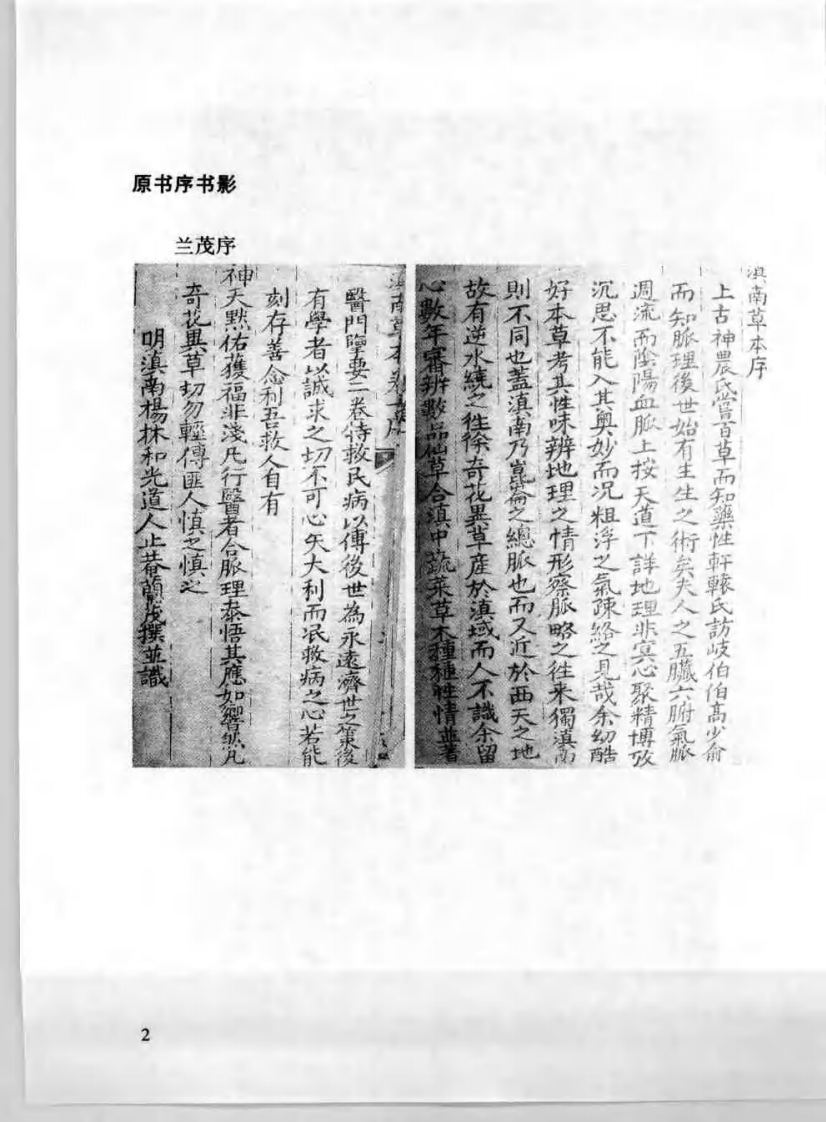 原书序书影
兰茂序
滇南草本序
上古神農氏嘗百草而知藥性軒轅氏訪岐伯伯高少俞
而知脈理後世始有生生之術矣夫人之五臟六腑氣脈
週流而陰陽血脈上按天道下詳地理非冥心聚精博攷
沉思不能入其奥妙而况粗浮之氣疎絡之見哉余幼酷
好本草考其性味辨地理之情形察脈略之往来獨滇南
則不同也蓋滇南乃崑崙之總脈也而又近於西天之地
故有逆水繞之往徐奇花異草産於滇域而人不識余留
心數年審辨數品仙草合滇中蔬菜草木種種性情並著
滇南草本卷序
醫門擥要二卷特救民病以傳後世為永遠濟世之策後
有學者以誠求之切不可心矢大利而泯救病之心若能
刻存善念利吾救人自有
神天黙佑獲福非淺凡行醫者合脈理泰悟其應如響然凡
奇花異草切勿輕傳匪人慎之慎之
明滇南楊林和光道人止菴蘭茂撰並識
2